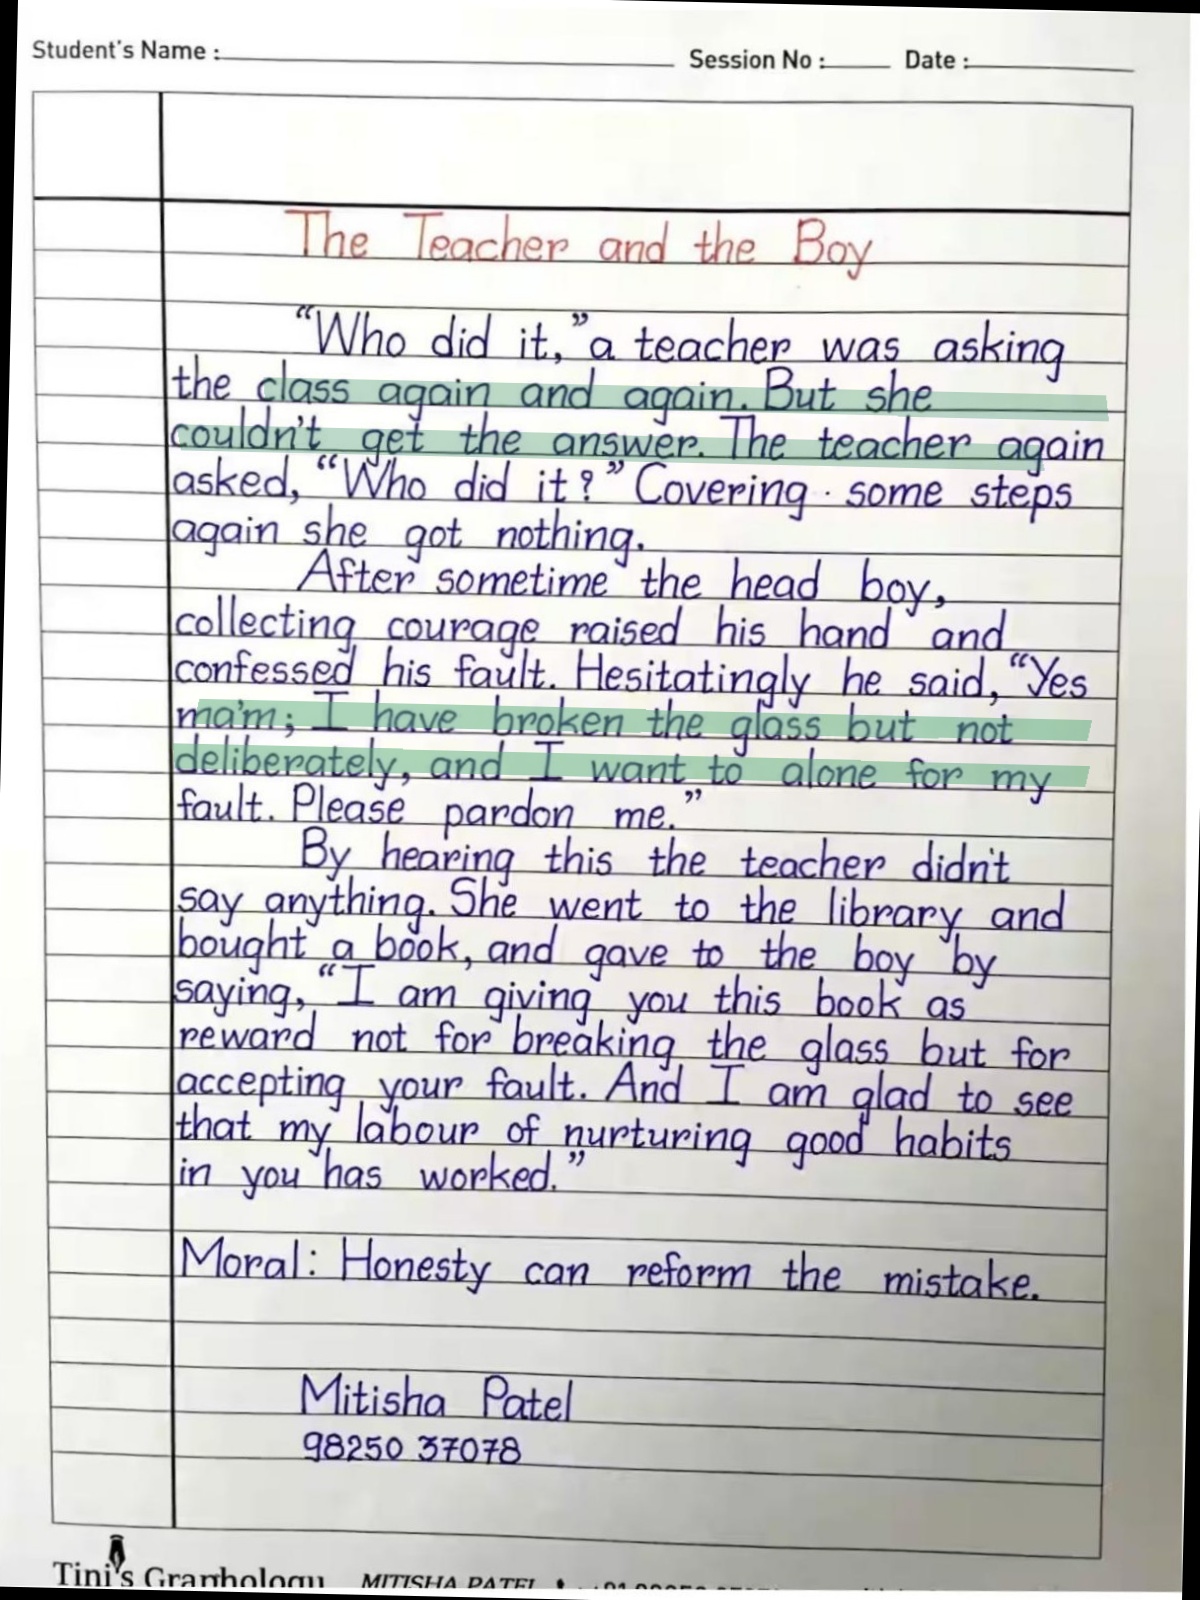 Student's Name :
Session No :
Date :
The Teacher and the Boy
"Who did it," a teacher was asking
the class again and again. But she
couldn't get the answer. The teacher again
asked, "Who did it?" Covering some steps
again she got nothing.
After sometime the head boy,
collecting courage raised his hand and
confessed his fault. Hesitatingly he said, "Yes
ma'm; I have broken the glass but not
deliberately, and I want to alone for my
fault. Please pardon me."
By hearing this the teacher didn't
say anything. She went to the library and
bought a book, and gave to the boy by
saying, "I am giving you this book as
reward not for breaking the glass but for
accepting your fault. And I am glad to see
that my labour of nurturing good habits
in you has worked."
Moral: Honesty can reform the mistake.
Mitisha Patel
98250 37078
Tini's Graphology
MITISHA PATEL